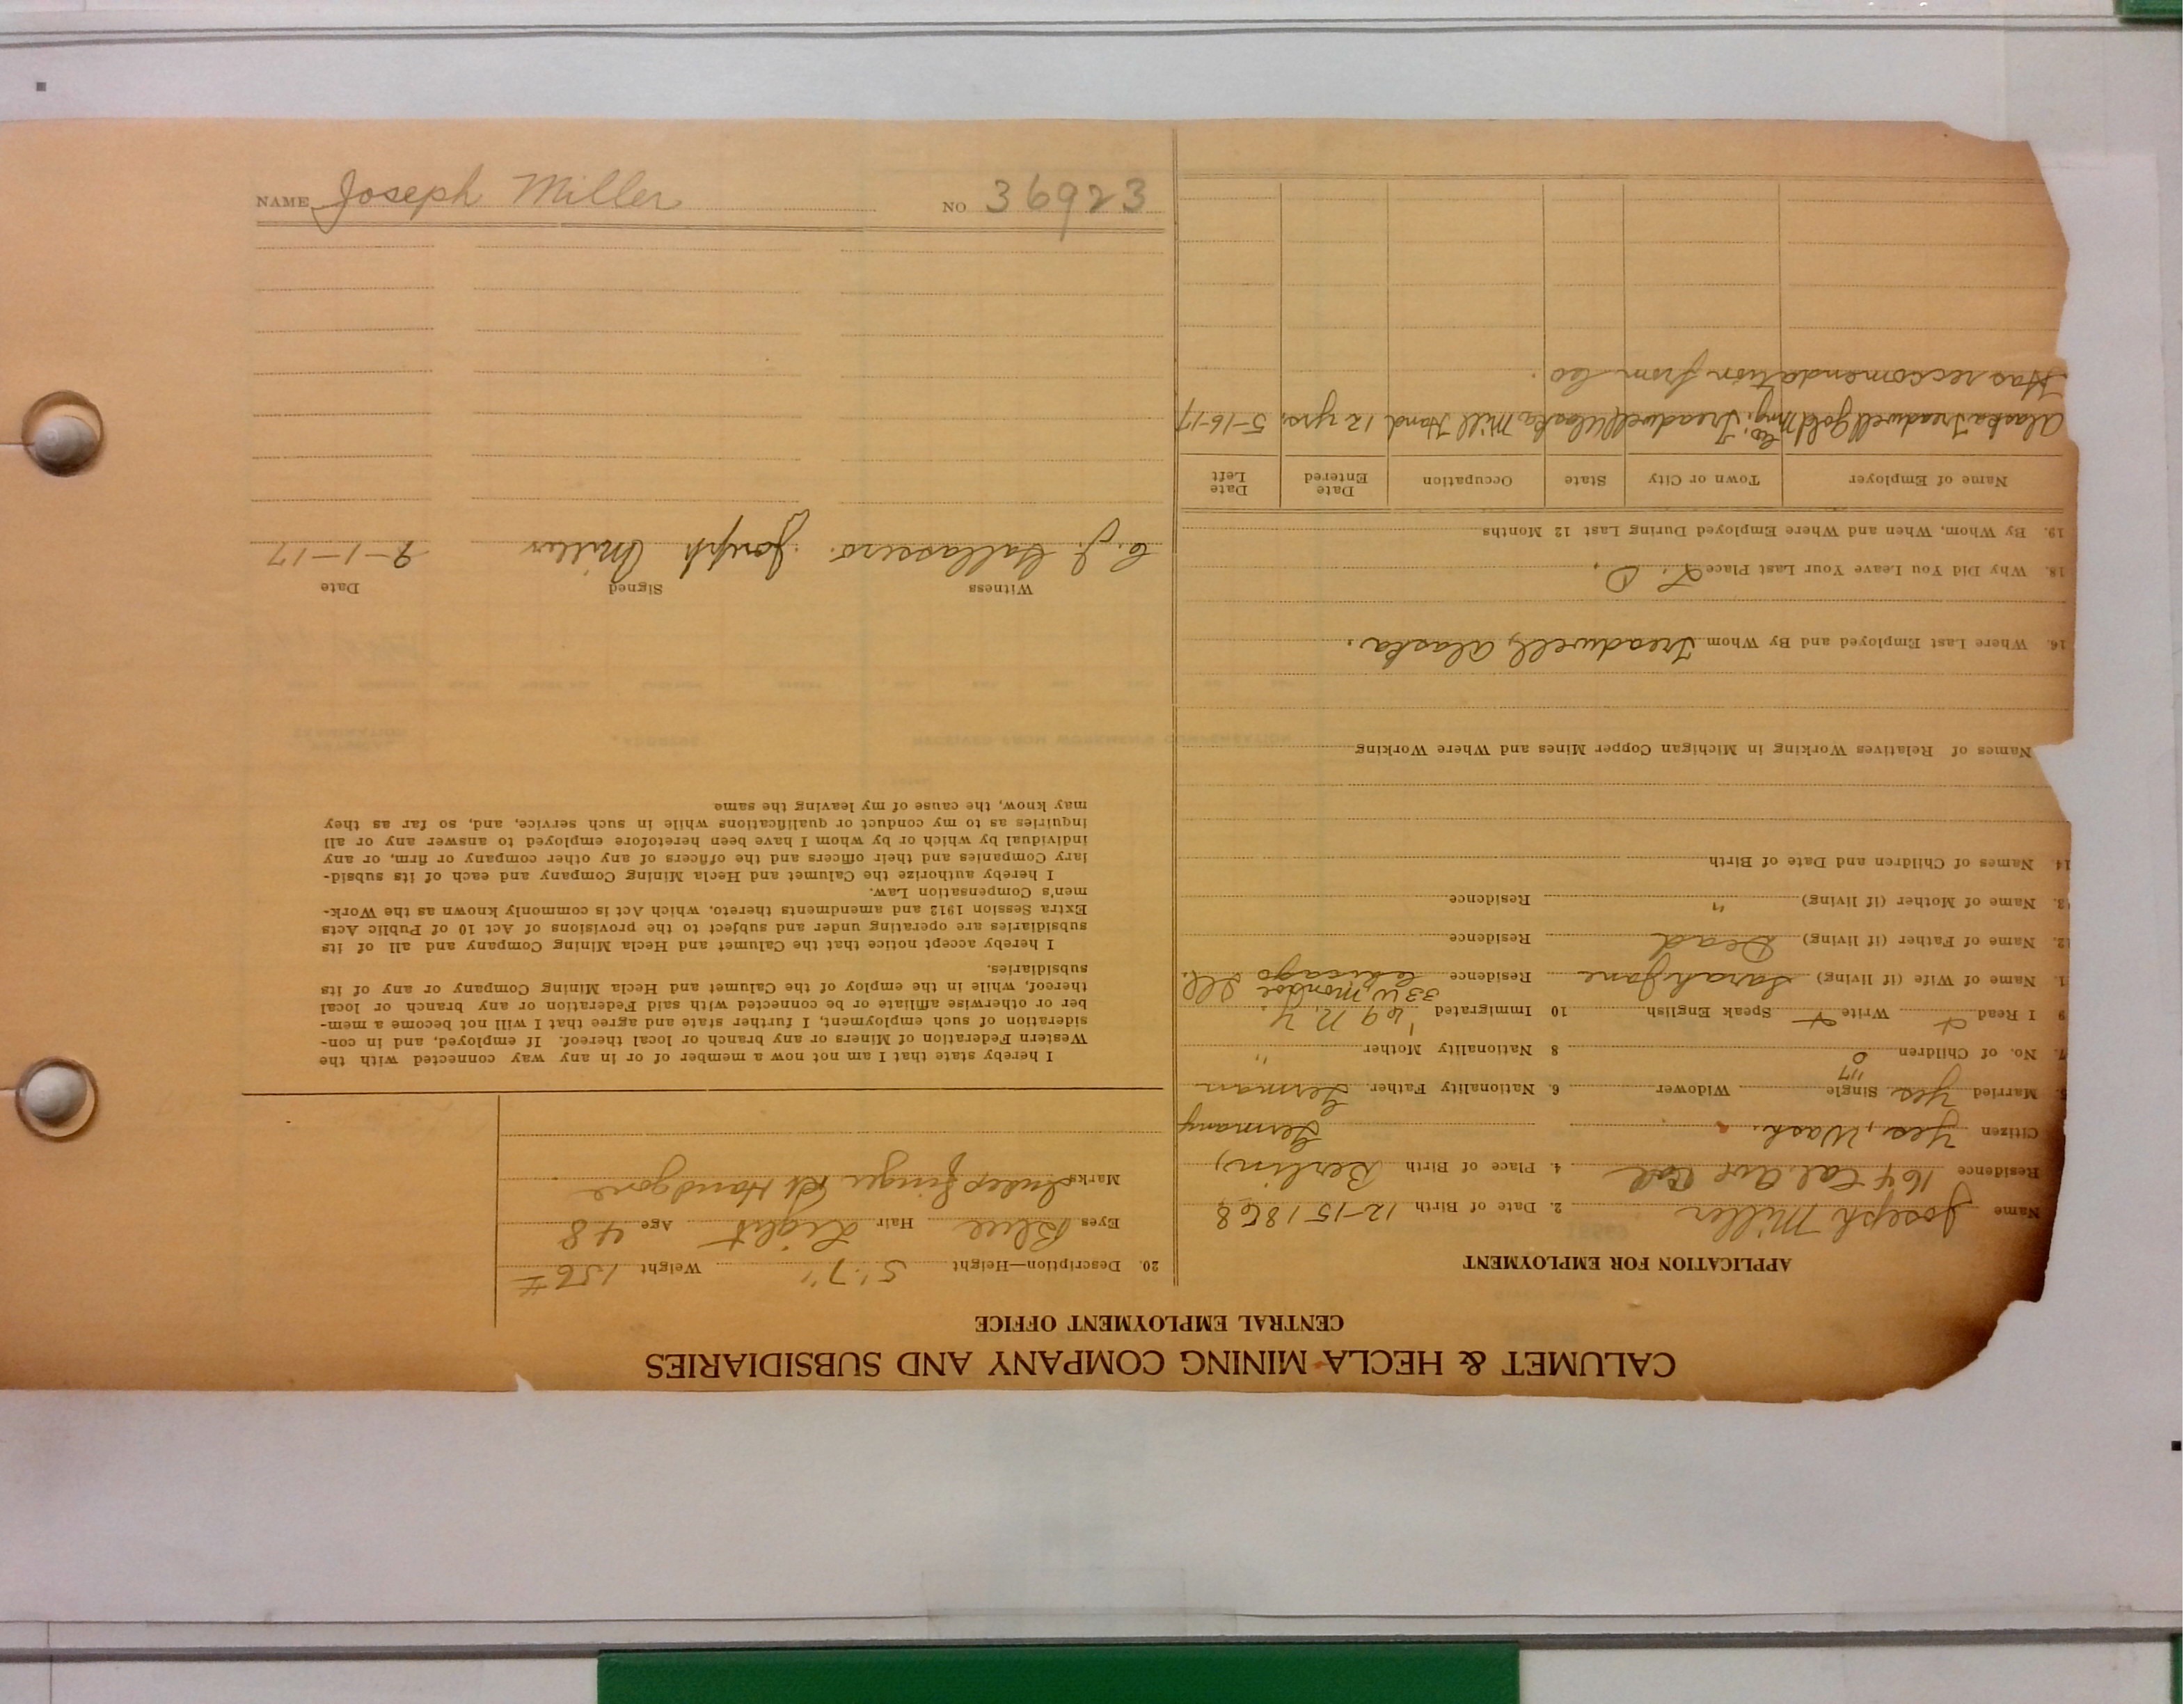 CALUMET & HECLA MINING COMPANY AND SUBSIDIARIES
CENTRAL EMPLOYMENT OFFICE
APPLICATION FOR EMPLOYMENT
Name Joseph Miller 2. Date of Birth 12-15 1868
Residence 164 Cal. Ave 4. Place of Birth Berlin,
Citizen Yes, Wash. Germany
5. Married Yes Single Widower 6. Nationality Father German
7. No. of Children 0 8 Nationality Mother "
9 I Read x Write Speak English x 10 Immigrated '69 N.Y.
33 W. Monroe
1. Name of Wife (if living) Sarah Jane Residence Chicago Ill.
12. Name of Father (if living) Dead Residence
3. Name of Mother (if living) " Residence
14. Names of Children and Date of Birth
Names of Relatives Working in Michigan Copper Mines and Where Working
16. Where Last Employed and By Whom Treadwell, Alaska.
18. Why Did You Leave Your Last Place
19. By Whom, When and Where Employed During Last 12 Months
Name of Employer Town or City State Occupation Date Entered Date Left
Alaska Treadwell Gold Mng. Co. Treadwell Alaska Mill Hand 12 yrs. 5-16-17
Has reccomendation from Co.
20. Description—Height 5' 7" Weight 156 #
Eyes Blue Hair Light Age 48
Marks Index finger Rt Hand gone
I hereby state that I am not now a member of or in any way connected with the
Western Federation of Miners or any branch or local thereof. If employed, and in con-
sideration of such employment, I further state and agree that I will not become a mem-
ber or otherwise affiliate or be connected with said Federation or any branch or local
thereof, while in the employ of the Calumet and Hecla Mining Company or any of its
subsidiaries.
I hereby accept notice that the Calumet and Hecla Mining Company and all of its
subsidiaries are operating under and subject to the provisions of Act 10 of Public Acts
Extra Session 1912 and amendments thereto, which Act is commonly known as the Work-
men's Compensation Law.
I hereby authorize the Calumet and Hecla Mining Company and each of its subsid-
iary Companies and their officers and the officers of any other company or firm, or any
individual by which or by whom I have been heretofore employed to answer any or all
inquiries as to my conduct or qualifications while in such service, and, so far as they
may know, the cause of my leaving the same
Witness Signed Date
C. J. Joseph Miller 9-1-17
NAME Joseph Miller NO 36923